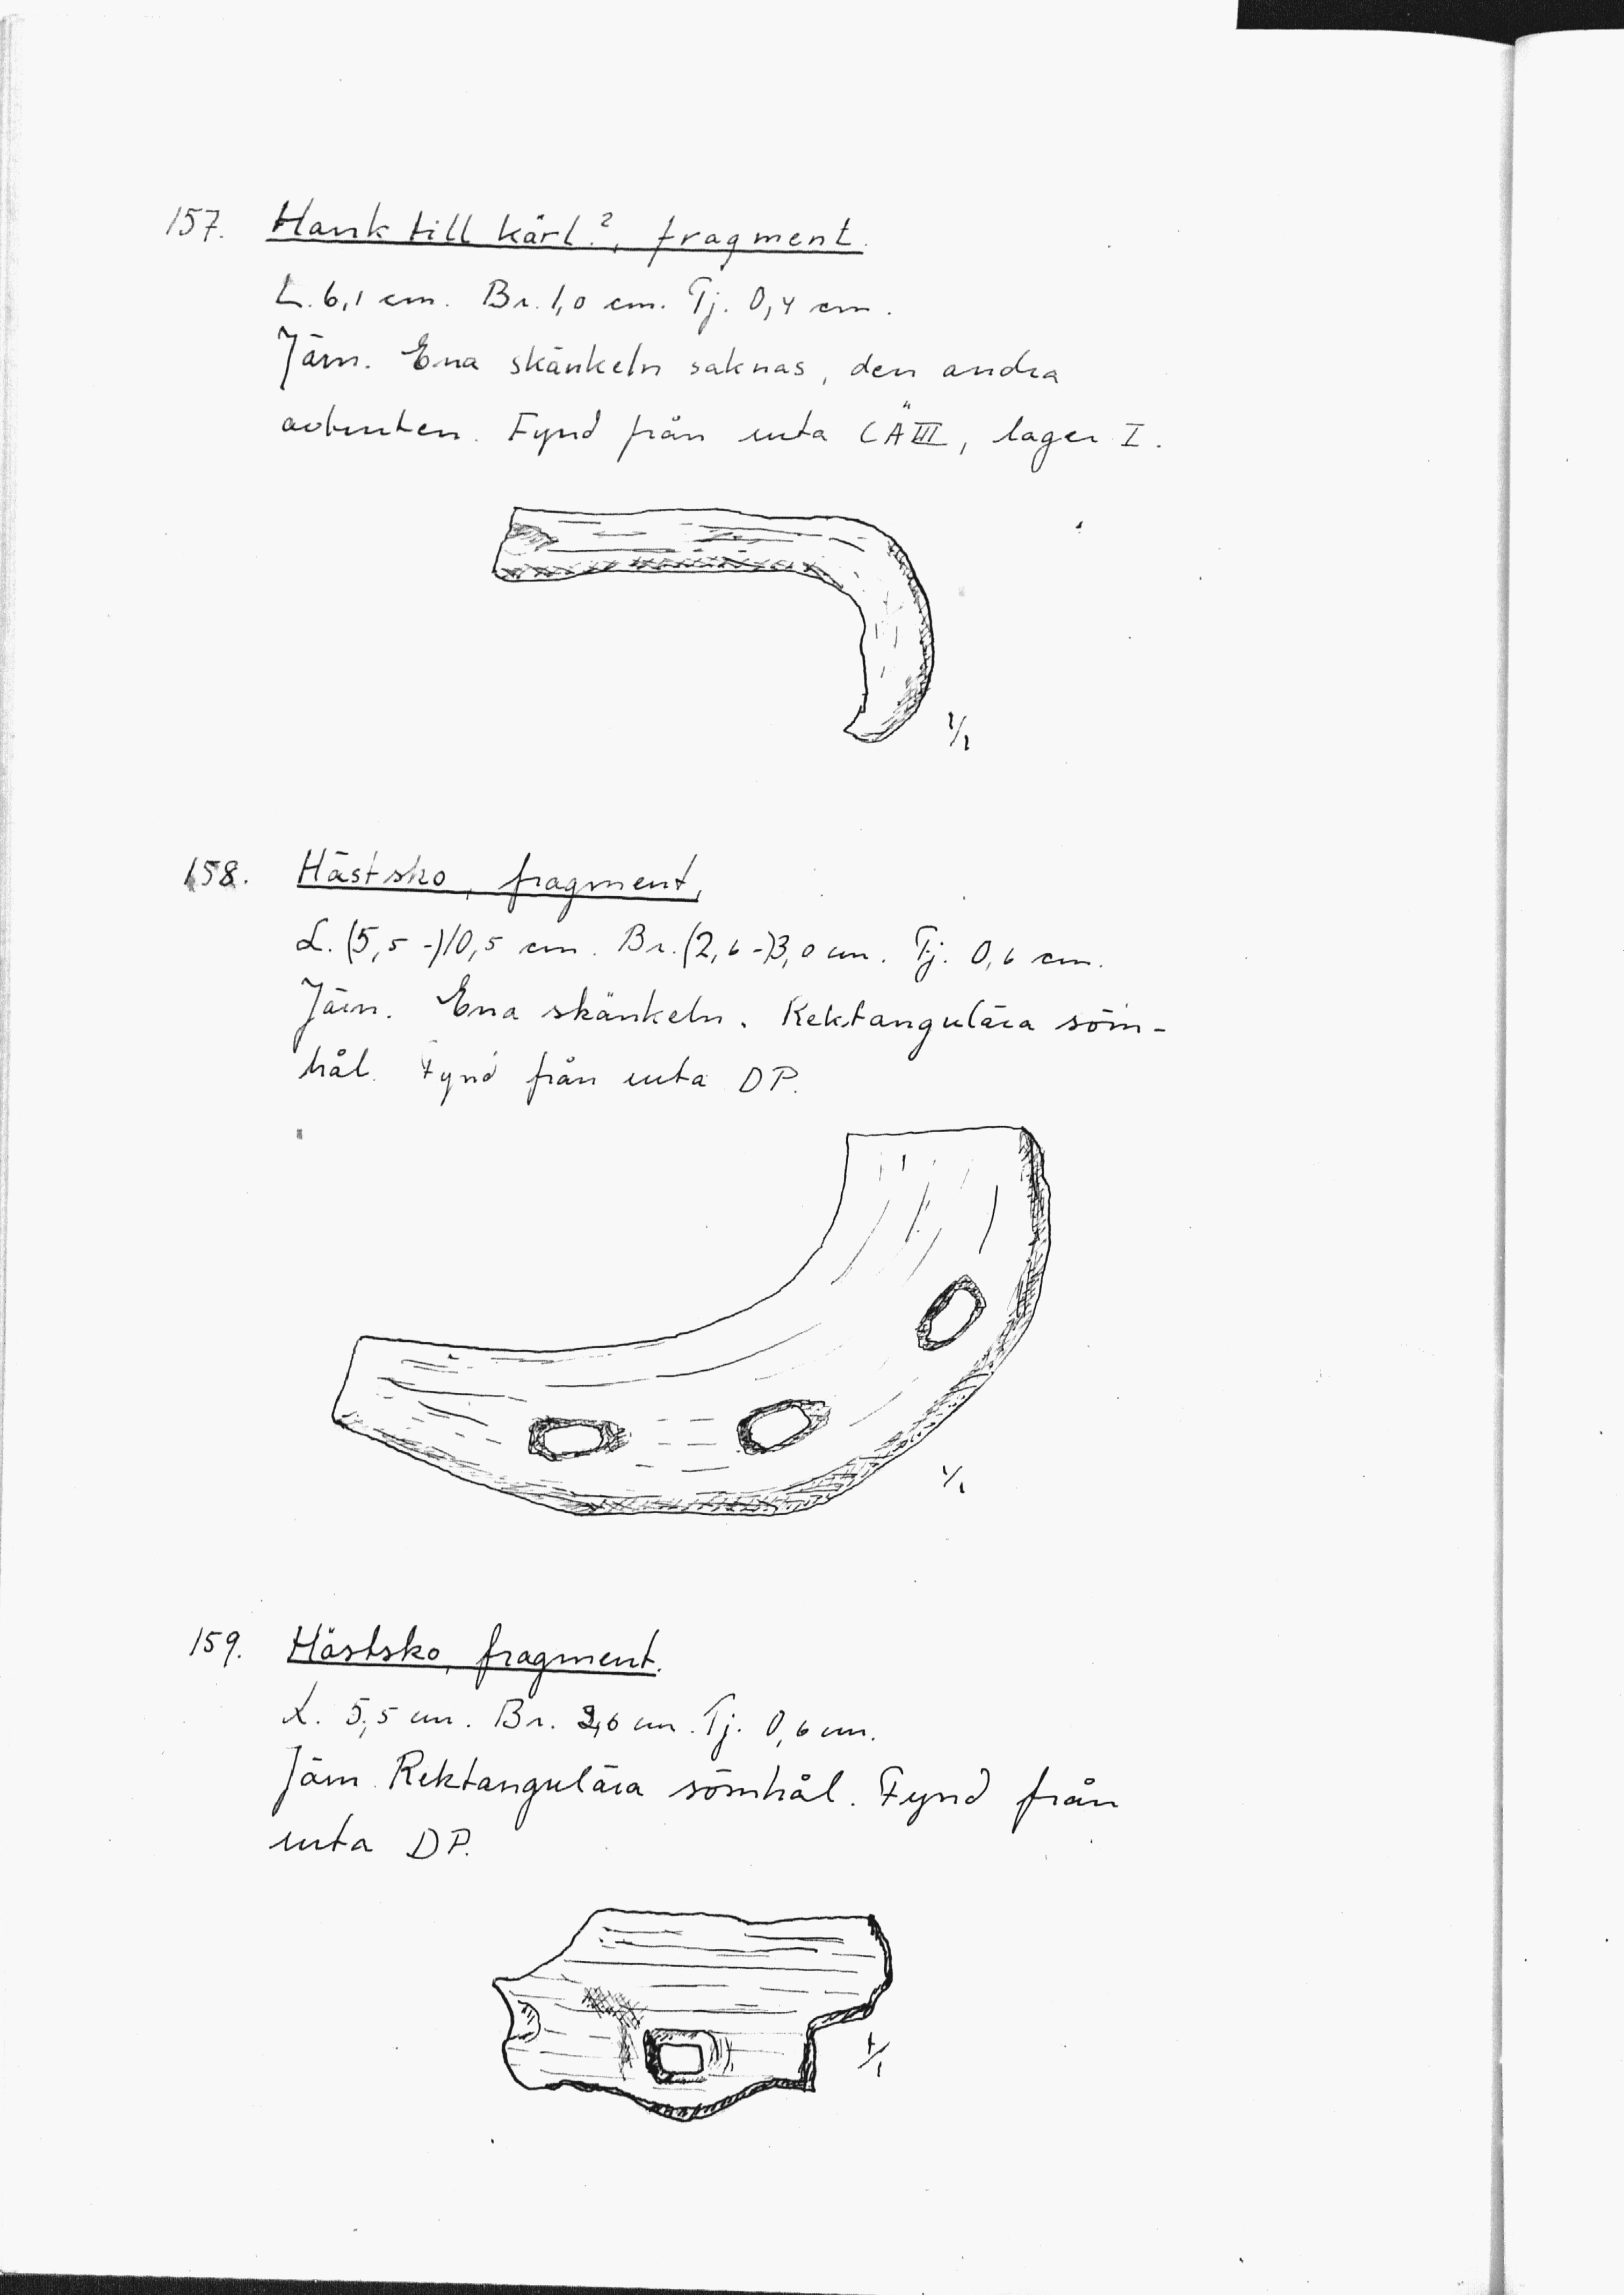 157. Hank till kärl?, fragment.
L. 6,1 cm. Br. 1,0 cm. Tj. 0,4 cm.
Järn. Ena skänkeln saknas, den andra
avbruten. Fynd från ruta CÄIII, lager I.
1/1
158. Hästsko, fragment,
L. (5,5-)10,5 cm. Br. (2,6-)3,0 cm. Tj. 0,6 cm.
Järn. Ena skänkeln. Rektangulära söm-
hål. Fynd från ruta DP.
1/1
159. Hästsko, fragment.
L. 5,5 cm. Br. cm. Tj. 0,6 cm.
Järn. Rektangulära sömhål. Fynd från
ruta DP.
1/1